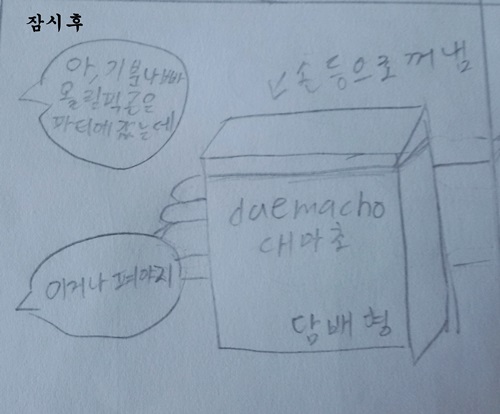 잠시 후
아, 기분나빠
올린픽곰은
파티에 갔는데
↙손 등으로 꺼냄
daemacho
대마초
이거나 펴야지
담배형